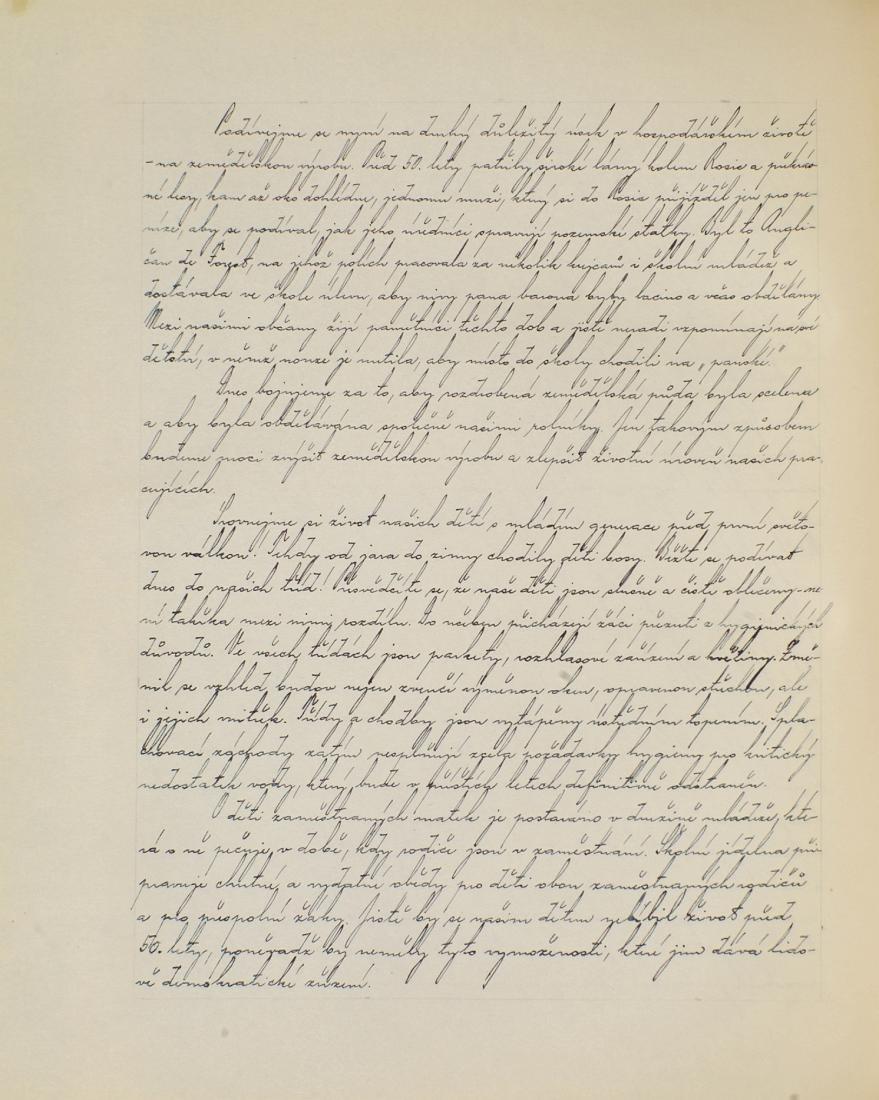 Podívejme se nyní na druhý důležitý úsek v hospodářském životě
- na zemědělskou výrobu. Před 50. lety patřily široké lány kolem Rosic a přilehlé
né lesy, kam až oko dohlédne, jednomu muži, který si do Rosic přijížděl jen pro pe-
níze, aby se podíval, jak jeho úředníci spravují pozemské statky. Byl to Angli-
čan de Forest, na jehož polích pracovala za několik krejcarů i školní mládež a
dostávala ve škole úlevu, aby nivy pana barona byly lacino a včas obdělány.
Mezi našimi občany žijí pamětníci těchto dob a jistě neradi vzpomínají na své
dětství, v němž nouze je nutila, aby místo do školy chodili na „panské."
Dnes bojujeme za to, aby rozdrobená zemědělská půda byla scelena
a aby byla obdělávána společně našimi rolníky. Jen takovým způsobem
budeme moci zvýšit zemědělskou výrobu a zlepšit životní úroveň našich pra-
cujících.
Srovnejme si život našich dětí s mládím generace před první světo-
vou válkou! Tehdy od jara do zimy chodily děti bosy. Běžte se podívat
dnes do našich tříd! Přesvědčíte se, že naše děti jsou slušně a čistě oblečeny - ne-
ní takřka mezi nimi rozdílu. Do učeben přicházejí žáci přezuti z hygienických
důvodů. Ve všech třídách jsou parkety, rozhlasové zařízení a květiny. Změ-
nil se vzhled budov nejen zvenčí výměnou oken, opravenou střechou, ale
i jejich vnitřek. Třídy a chodby jsou vytápěny ústředním topením. Spla-
chovací záchody zatím nesplňují zcela požadavky hygieny pro kritický
nedostatek vody, který bude v příštích letech definitivně odstraněn.
O děti zaměstnaných matek je postaráno v družině mládeže, kte-
rá o ně pečuje v době, kdy rodiče jsou v zaměstnání. Školní jídelna při-
pravuje chutné a vydatné obědy pro děti obou zaměstnaných rodičů
a pro přespolní žáky. Jistě by se našim dětem nelíbil život před
50. lety, poněvadž by neměly tyto vymoženosti, které jim dává lido-
vě demokratické zřízení.